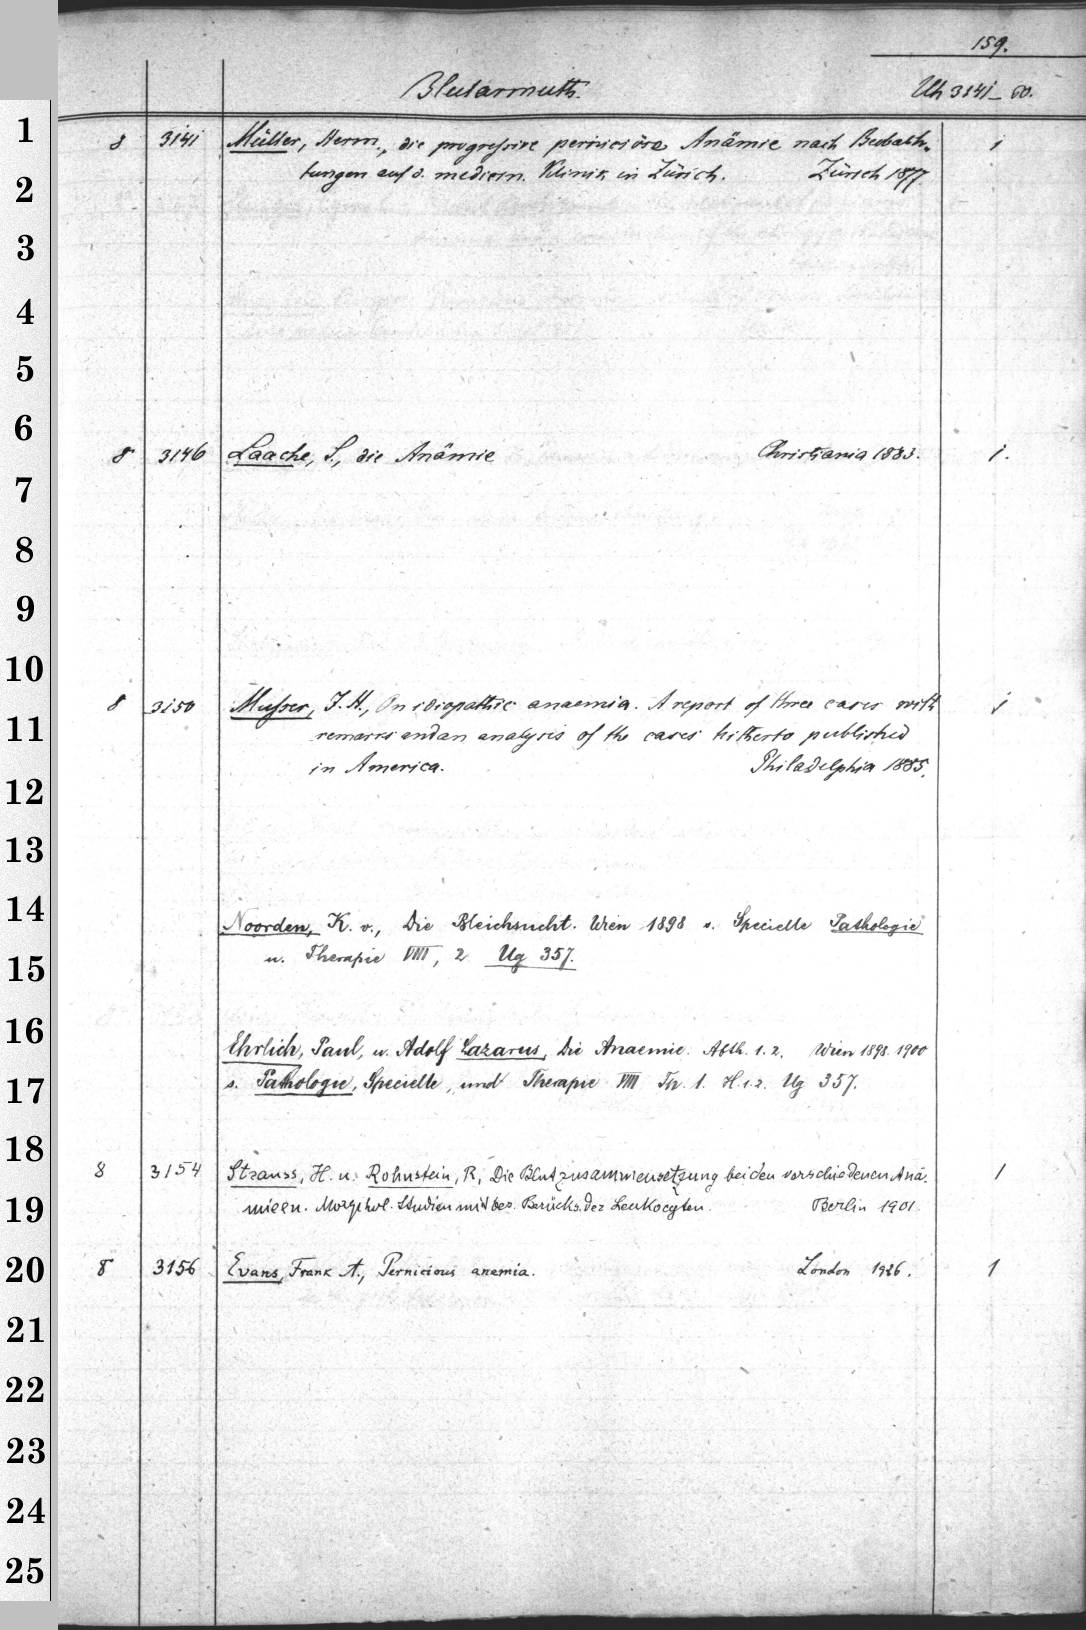 159.
Blutarmuth.
Uh 3141-60.
1
8 3141 Müller, Herm., die progressive perniciöse Anämie nach Beobach- 1
2
tungen auf d. medicin. Klinik in Zürich. Zürich 1877
3
4
5
6
8 3146 Laache, S., die Anämie Christiania 1883. 1.
7
8
9
10
8 3150 Musser, J. H., On idiopathic anaemia. A report of three cases with 1
11
remarks and an analysis of the cases hitherto published
12
in America. Philadelphia 1885.
13
14
Noorden, K. v., Die Bleichsucht. Wien 1898 s. Specielle Pathologie
15
u. Therapie VIII, 2 Ug 357.
16
Ehrlich, Paul, u. Adolf Lazarus, Die Anaemie. Abth. 1. 2. Wien 1898. 1900
17
s. Pathologie, Specielle, und Therapie VIII Th. 1. H. 1. 2. Ug 357.
18
8 3154 Strauss, H. u. Rohnstein, R., Die Blutzusammensetzung bei den verschiedenen Anä- 1
19
mieen. Morphol. Studien mit bes. Berücks. der Leukocyten. Berlin 1901.
20
8 3156 Evans, Frank A., Pernicious anemia. London 1926. 1
21
22
23
24
25